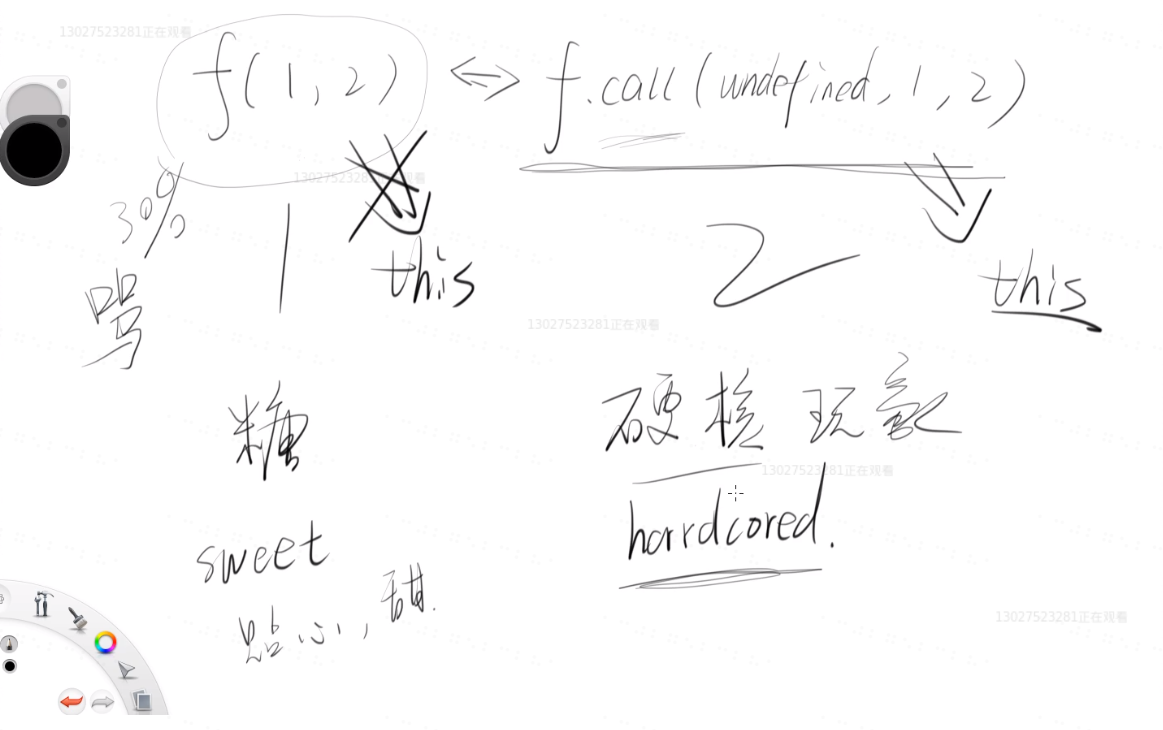 13027523281正在观看
f(1,2) <=> f.call(undefined,1,2)
1302752328
30%
1
this
2
this
骂
13027523281正在观看
糖
硬核玩家
13027523281正在观看
sweet
harrdcored.
点心,甜.
13027523281正在观看